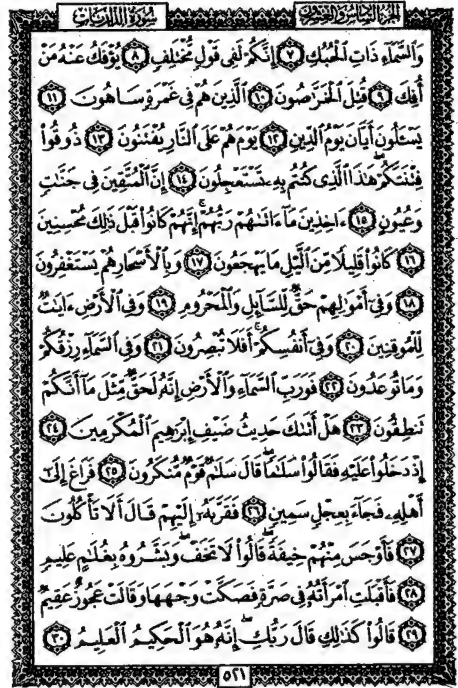 سُورَةُ الذَّارِيَاتِ
الجُزْءُ السَّادِسُ وَالعِشْرُونَ
وَٱلسَّمَآءِ ذَاتِ ٱلۡحُبُكِ ٧ إِنَّكُمۡ لَفِي قَوۡلٖ مُّخۡتَلِفٖ ٨ يُؤۡفَكُ عَنۡهُ مَنۡ
أُفِكَ ٩ قُتِلَ ٱلۡخَرَّٰصُونَ ١٠ ٱلَّذِينَ هُمۡ فِي غَمۡرَةٖ سَاهُونَ ١١
يَسۡـَٔلُونَ أَيَّانَ يَوۡمُ ٱلدِّينِ ١٢ يَوۡمَ هُمۡ عَلَى ٱلنَّارِ يُفۡتَنُونَ ١٣ ذُوقُواْ
فِتۡنَتَكُمۡ هَٰذَا ٱلَّذِي كُنتُم بِهِۦ تَسۡتَعۡجِلُونَ ١٤ إِنَّ ٱلۡمُتَّقِينَ فِي جَنَّٰتٖ
وَعُيُونٍ ١٥ ءَاخِذِينَ مَآ ءَاتَىٰهُمۡ رَبُّهُمۡۚ إِنَّهُمۡ كَانُواْ قَبۡلَ ذَٰلِكَ مُحۡسِنِينَ
١٦ كَانُواْ قَلِيلٗا مِّنَ ٱلَّيۡلِ مَا يَهۡجَعُونَ ١٧ وَبِٱلۡأَسۡحَارِ هُمۡ يَسۡتَغۡفِرُونَ
١٨ وَفِيٓ أَمۡوَٰلِهِمۡ حَقّٞ لِّلسَّآئِلِ وَٱلۡمَحۡرُومِ ١٩ وَفِي ٱلۡأَرۡضِ ءَايَٰتٞ
لِّلۡمُوقِنِينَ ٢٠ وَفِيٓ أَنفُسِكُمۡۚ أَفَلَا تُبۡصِرُونَ ٢١ وَفِي ٱلسَّمَآءِ رِزۡقُكُمۡ
وَمَا تُوعَدُونَ ٢٢ فَوَرَبِّ ٱلسَّمَآءِ وَٱلۡأَرۡضِ إِنَّهُۥ لَحَقّٞ مِّثۡلَ مَآ أَنَّكُمۡ
تَنطِقُونَ ٢٣ هَلۡ أَتَىٰكَ حَدِيثُ ضَيۡفِ إِبۡرَٰهِيمَ ٱلۡمُكۡرَمِينَ ٢٤
إِذۡ دَخَلُواْ عَلَيۡهِ فَقَالُواْ سَلَٰمٗاۖ قَالَ سَلَٰمٞ قَوۡمٞ مُّنكَرُونَ ٢٥ فَرَاغَ إِلَىٰٓ
أَهۡلِهِۦ فَجَآءَ بِعِجۡلٖ سَمِينٖ ٢٦ فَقَرَّبَهُۥٓ إِلَيۡهِمۡ قَالَ أَلَا تَأۡكُلُونَ
٢٧ فَأَوۡجَسَ مِنۡهُمۡ خِيفَةٗۖ قَالُواْ لَا تَخَفۡۖ وَبَشَّرُوهُ بِغُلَٰمٍ عَلِيمٖ
٢٨ فَأَقۡبَلَتِ ٱمۡرَأَتُهُۥ فِي صَرَّةٖ فَصَكَّتۡ وَجۡهَهَا وَقَالَتۡ عَجُوزٌ عَقِيمٞ
٢٩ قَالُواْ كَذَٰلِكِ قَالَ رَبُّكِۖ إِنَّهُۥ هُوَ ٱلۡحَكِيمُ ٱلۡعَلِيمُ ٣٠
٥٢١